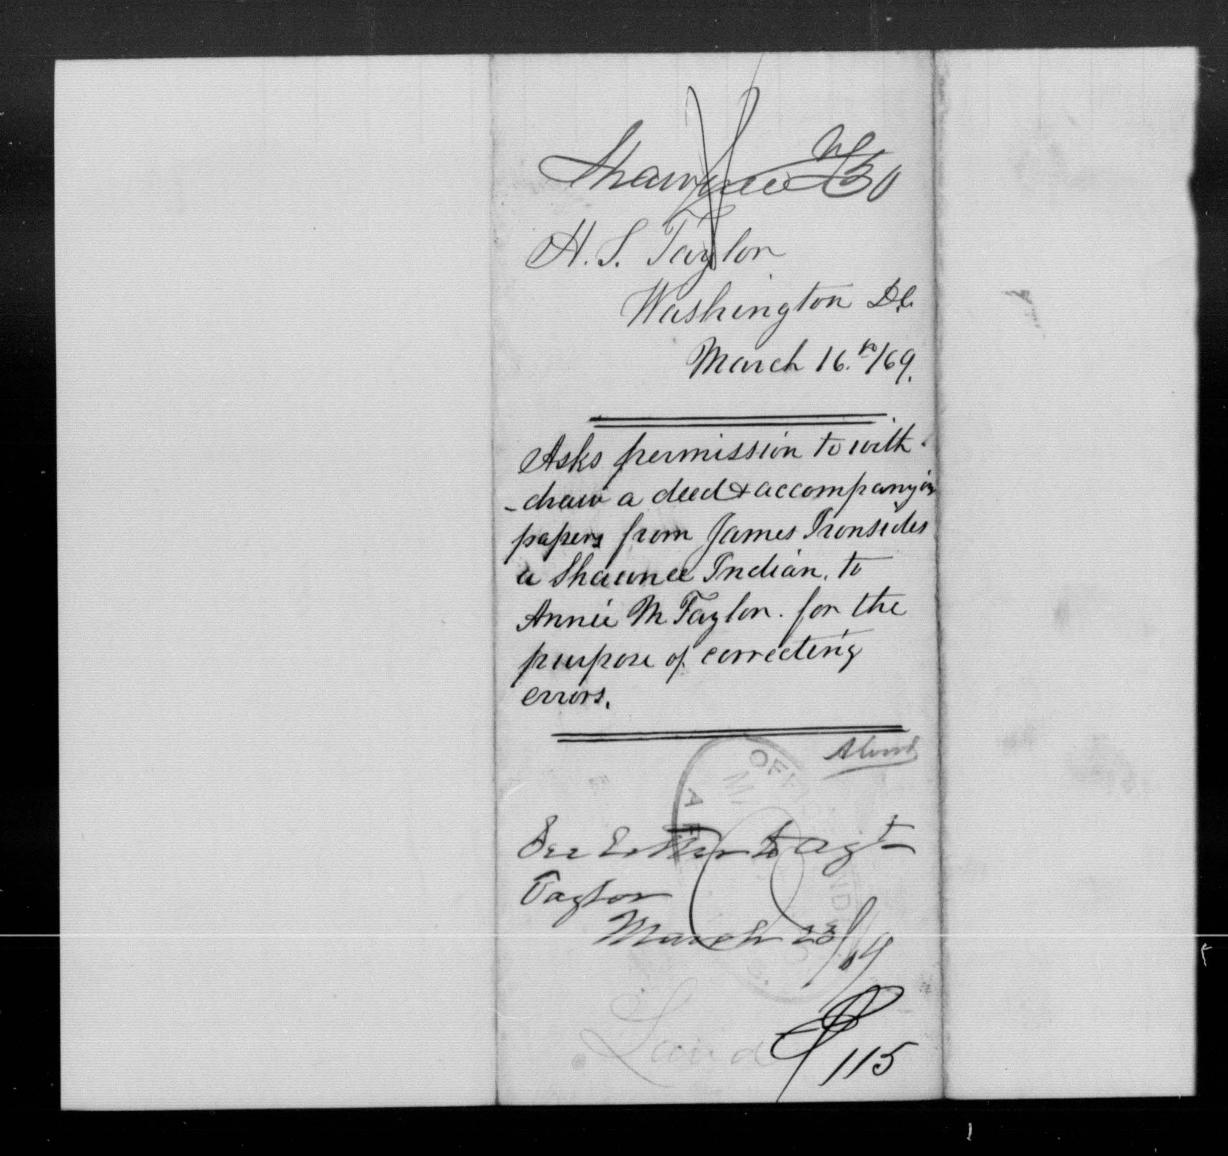 Shawnee
H. S. Taylor
Washington D.C.
March 16.th/69.
Asks permission to with-
-draw a deed & accompanying
papers from James Ironsides
a Shawnee Indian, to
Annie M Taylor. for the
purpose of correcting
errors.
See Letter to Agt
Taylor
March 23/69
Land
115